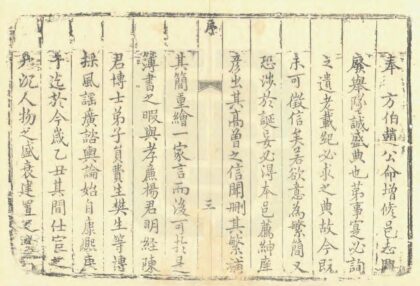 奉 方伯趙公命增修邑志興
廢舉墜誠盛典也第事寔必詢
之遺老載紀必求之典故今既
未可徵信矣若欲意為繁簡又
恐涉於誕妄必得本邑薦紳產
彥出其高曾之信聞刪其繁
序
三
其簡重繪一家言而後可於是
簿書之暇與孝廉楊君明經陳
君博士弟子員費生樊生等博
採風謠廣諮輿論始自康熙庚
午迄於今歲乙丑其間仕宦之
沉人物之盛衰建置之